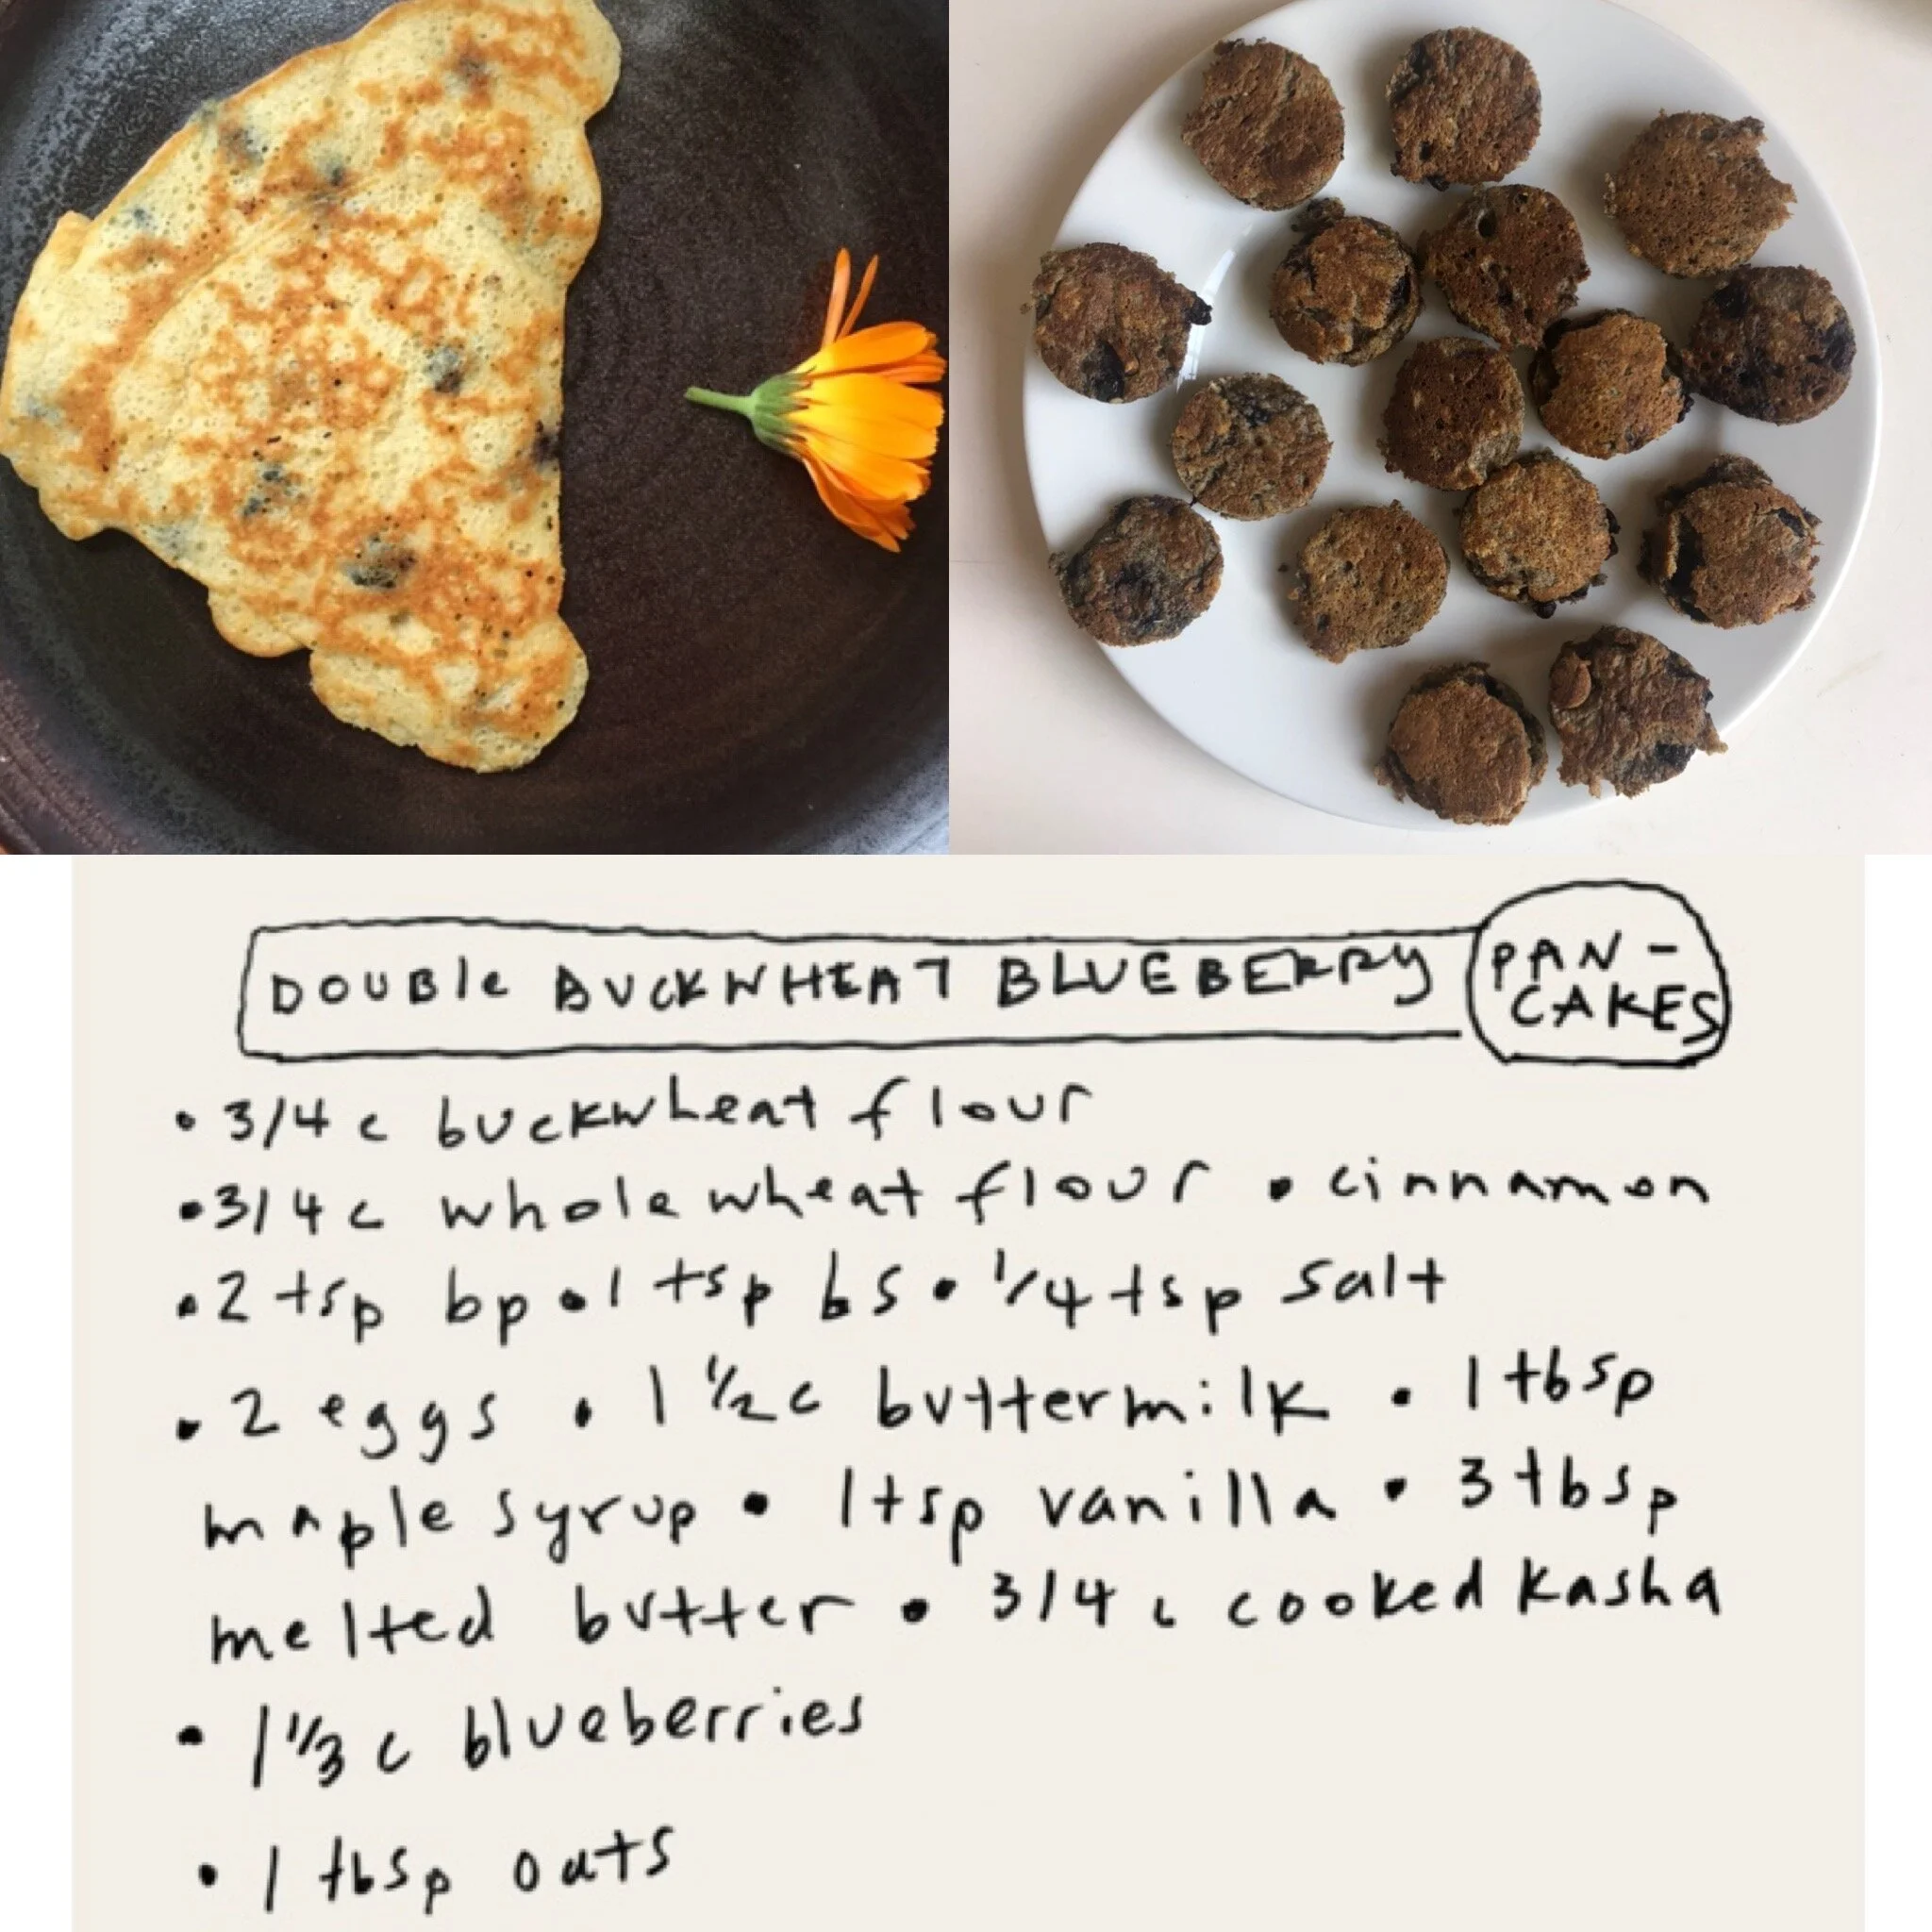 DOUBle BUCKWHEAT BLUEBERRY PAN-
CAKES
• 3/4 c buckwheat flour
• 3/4 c whole wheat flour • cinnamon
• 2 tsp bp • 1 tsp bs • 1/4 tsp salt
• 2 eggs • 1 1/2 c buttermilk • 1 tbsp
maple syrup • 1 tsp vanilla • 3 tbsp
melted butter • 3/4 c cooked kasha
• 1 1/3 c blueberries
• 1 tbsp oats